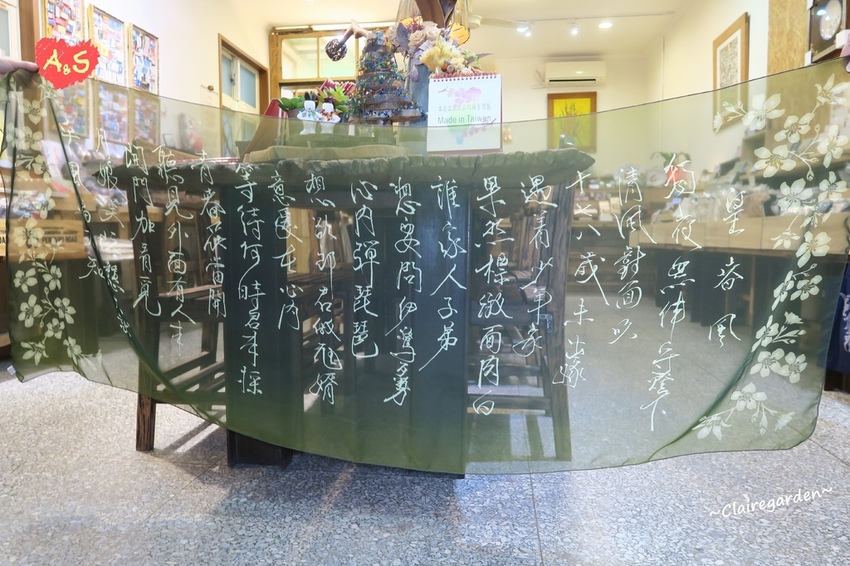 A&S
Made in Taiwan
望春風
獨夜無伴守燈下
清風對面吹
十七八歲未出嫁
遇著少年家
果然標緻面肉白
誰家人子弟
想要問伊驚歹勢
心內彈琵琶
想欲郎君做尪婿
意愛在心內
等待何時君來採
青春花當開
聽見外面有人來
開門加看覓
~Clairegarden~